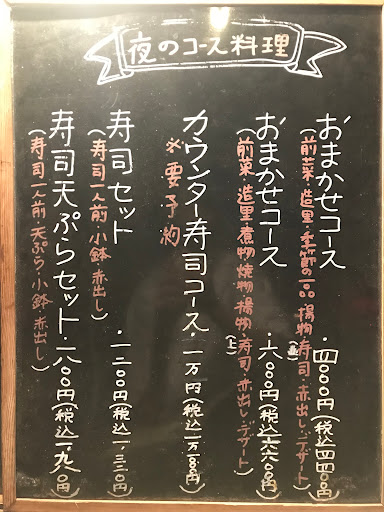 夜のコース料理
おまかせコース・四〇〇〇円(税込四四〇〇円)
(前菜・造里・季節の一品 揚物 寿司(並)・赤出し・デザート)
おまかせコース・六〇〇〇円(税込六六〇〇円)
(前菜・造里・煮物・焼物・揚物・寿司(上)・赤出し・デザート)
カウンター寿司コース・一万円(税込一万一〇〇〇円)
※要予約
寿司セット・一二〇〇円(税込一三二〇円)
(寿司一人前・小鉢・赤出し)
寿司天ぷらセット・一八〇〇円(税込一九八〇円)
(寿司一人前・天ぷら・小鉢・赤出し)